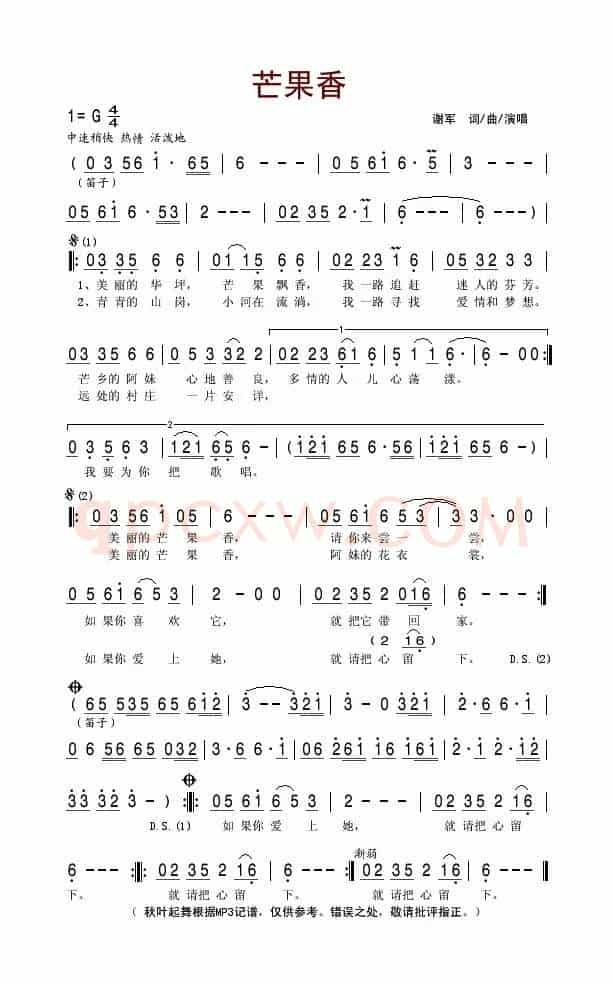 芒果香
1= G 4/4
谢军 词/曲/演唱
中速稍快 热情 活泼地
( 0 3 56 1 · 65 | 6 - - - | 0 5 61 6 · 5 | 3 - - - |
(笛子)
05 61 6 · 53 | 2 - - - | 02 35 2 · 1 | 6 - - - | 6 - - - )
(1)
|: 03 35 6 6 | 01 1 5 - | 02 23 1 1 | 02 32 3 3 |
1、美 丽的 华 坪， 芒 果 飘 香， 我 一路 追 赶 迷 人的 芬 芳。
2、青 青的 山 岗， 小 河在 流 淌， 我 一路 寻 找 爱 情和 梦 想。
1
03 35 6 6 | 0 5 3 32 2 | 02 23 61 6 | 5 11 6 · | 6 - 00 :|
芒 乡的 阿 妹 心 地 善 良， 多 情的 人 儿 心 荡 漾。
远 处的 村 庄 一 片 安 详，
2
0 3 5 6 3 | 121 65 6 - | (121 65 6 · 56 | 121 65 6 - ) |
我 要 为 你 把 歌 唱。
(2)
|: 0 3 56 1 05 | 6 - - - | 05 61 6 53 | 3 - 0 0 |
美 丽的 芒 果 香， 请 你来 尝 一 尝，
美 丽的 芒 果 香， 阿 妹的 花 衣 裳，
qpcxw.COM
0 5 61 6 53 | 2 - 0 0 | 0 2 35 2 016 | 6 - - - :|
如 果你 喜 欢 它， 就 把它 带 回 家。
( 2 16 )
如 果你 爱 上 她， 就 请把 心 留 下。 D.S.(2)
( 65 535 65 612 | 3 - - 321 | 3 · 5 2 321 | 2 · 6 6 1 |
(笛子)
0 6 56 65 032 | 3 · 6 6 · 1 | 06 261 16 161 | 2 - 2123 |
33 32 3 - ) :|: 05 61 6 53 | 2 - - - | 02 35 2 16 |
D.S.(1) 如 果你 爱 上 她， 就 请把 心 留
渐弱
6 - - - :|: 02 35 2 16 | 6 - - - :|: 02 35 2 16 | 6 - - - :|
下。 就 请把 心 留 下。 就 请把 心 留 下。
( 秋叶起舞根据MP3记谱，仅供参考。错误之处，敬请批评指正。)